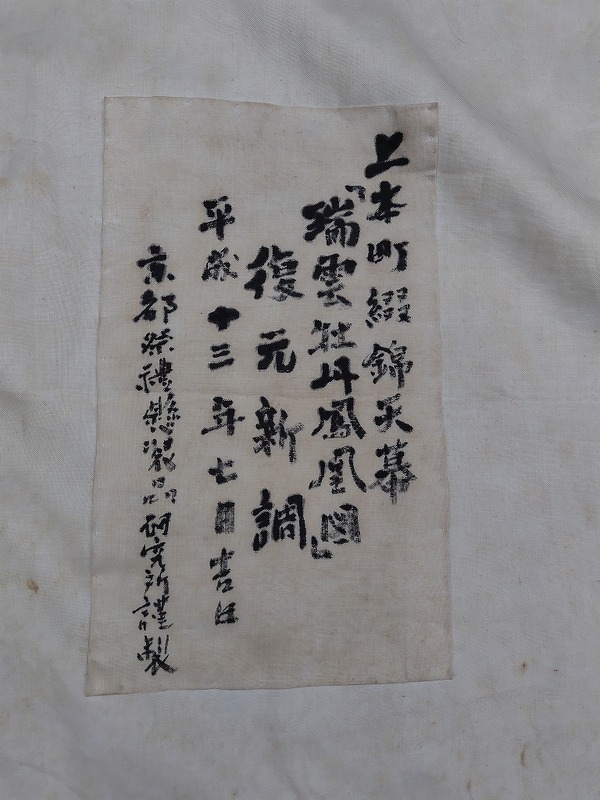 上本町綴錦天幕
「瑞雲牡丹鳳凰図」
復元新調
平成十三年七月吉日
京都祭禮懸装品研究所謹製